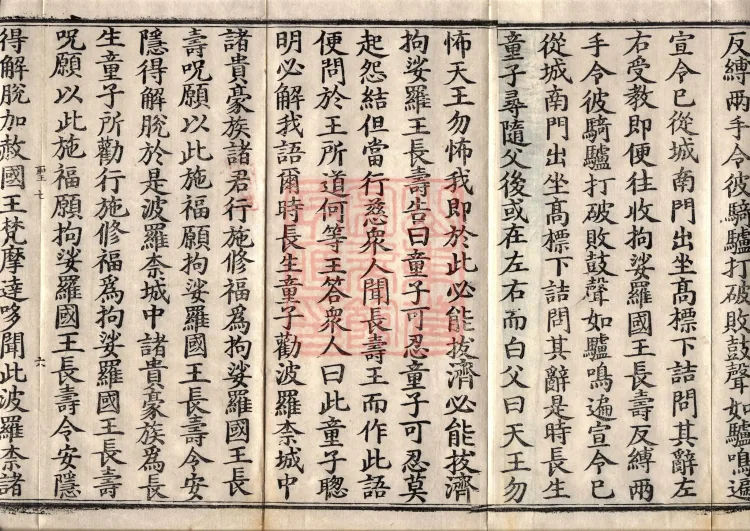 反縛兩手令彼騎驢打破敗鼓聲如驢鳴遍
宣令已從城南門出坐高標下詰問其辭左
右受教即便往收拘娑羅國王長壽反縛兩
手令彼騎驢打破敗鼓聲如驢鳴遍宣令已
從城南門出坐高標下詰問其辭是時長生
童子尋隨父後或在左右而白父曰天王勿
怖天王勿怖我即於此必能拔濟必能拔濟
拘娑羅王長壽告曰童子可忍童子可忍莫
起怨結但當行慈衆人聞長壽王而作此語
便問於王所道何等王答衆人曰此童子聰
明必解我語爾時長生童子勸波羅柰城中
諸貴豪族諸君行施修福爲拘娑羅國王長
壽呪願以此施福願拘娑羅國王長壽令安
隱得解脫於是波羅柰城中諸貴豪族爲長
生童子所勸行施修福爲拘娑羅國王長壽
呪願以此施福願拘娑羅國王長壽令安隱
得解脫加赦國王梵摩達哆聞此波羅柰諸
聖七
六